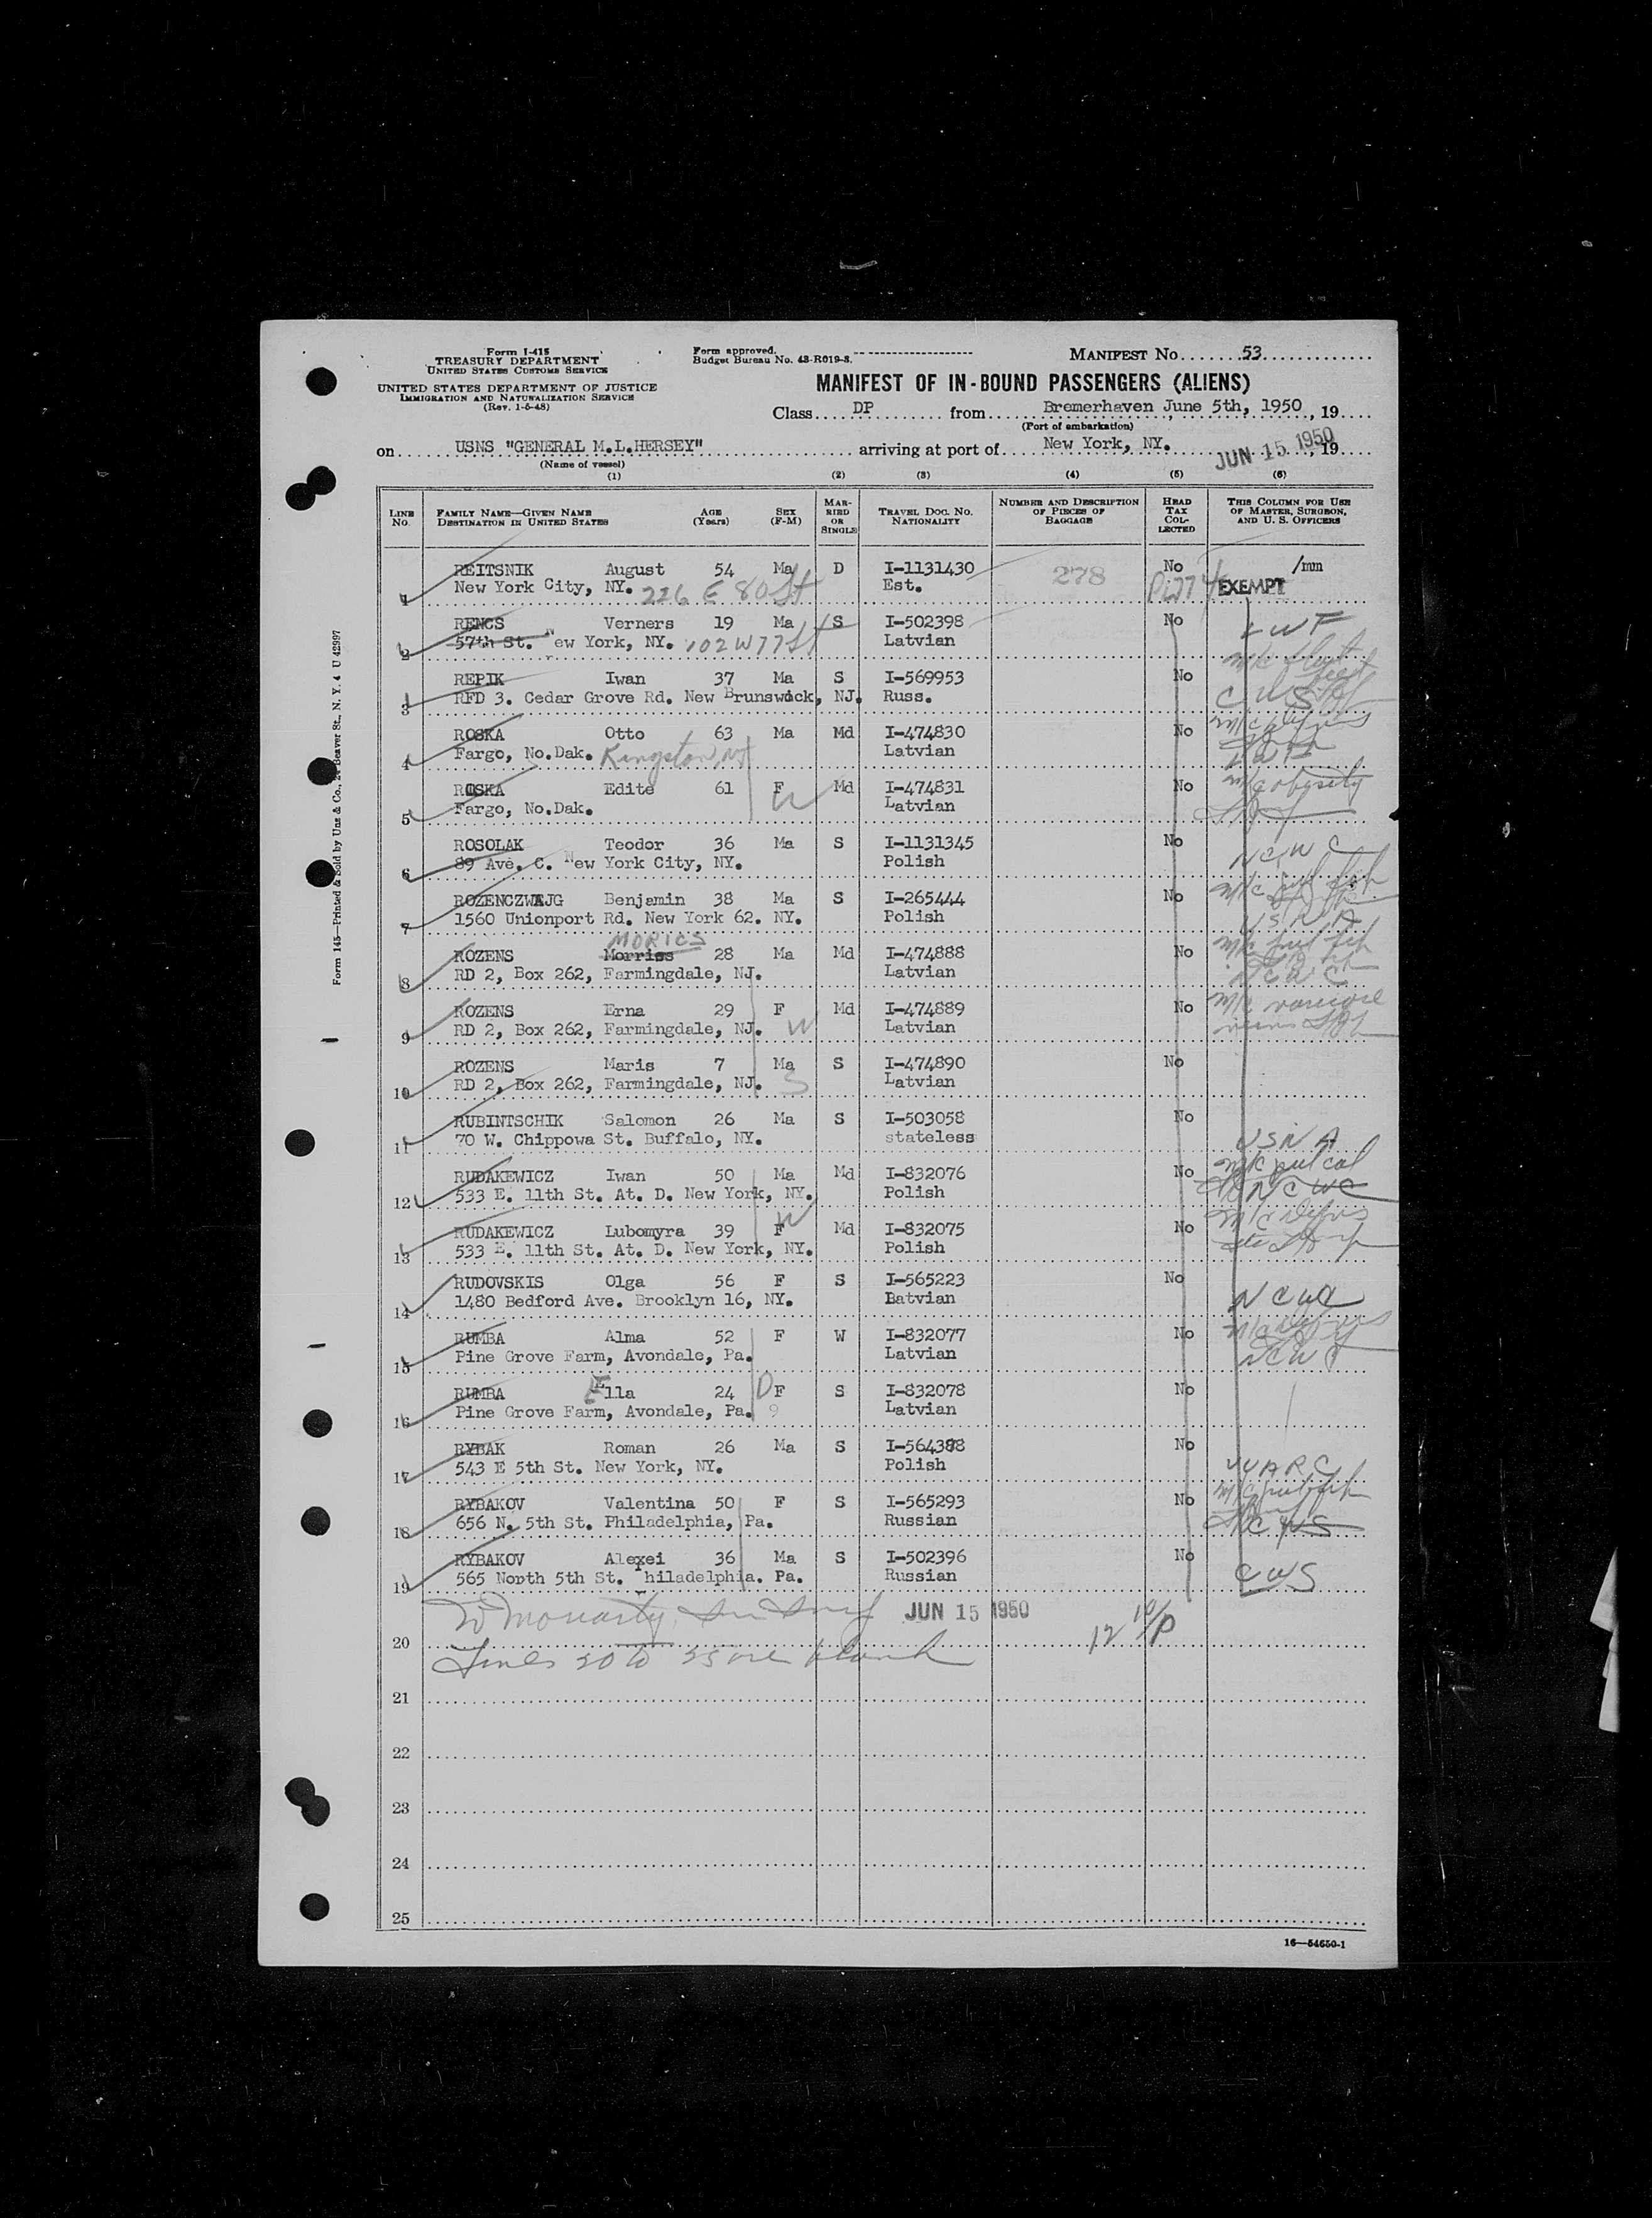 Form I-415
TREASURY DEPARTMENT
UNITED STATES CUSTOMS SERVICE
UNITED STATES DEPARTMENT OF JUSTICE
IMMIGRATION AND NATURALIZATION SERVICE
(Rev. 1-5-48)
Form approved.
Budget Bureau No. 43-R019-3.
MANIFEST No. 53
MANIFEST OF IN-BOUND PASSENGERS (ALIENS)
Class DP from Bremerhaven June 5th, 1950, 19
(Port of embarkation)
on USNS "GENERAL M.L.HERSEY" arriving at port of New York, NY. JUN 15 1950, 19
(Name of vessel)
(1) (2) (3) (4) (5) (6)
LINE No. FAMILY NAME—GIVEN NAME DESTINATION IN UNITED STATES AGE (Years) SEX (F-M) MARRIED OR SINGLE TRAVEL DOC. NO. NATIONALITY NUMBER AND DESCRIPTION OF PIECES OF BAGGAGE HEAD TAX COLLECTED THIS COLUMN FOR USE OF MASTER, SURGEON, AND U. S. OFFICERS
1 REITSNIK August 54 Ma D I-1131430 278 No /mm
New York City, NY. 226 E 80 St Est. EXEMPT
2 RENCS Verners 19 Ma S I-502398 No LWF
57th St. New York, NY. 102 W 77 St Latvian
3 REPIK Iwan 37 Ma S I-569953 No
RFD 3. Cedar Grove Rd. New Brunswick, NJ. Russ. CWS
4 ROSKA Otto 63 Ma Md I-474830 No
Fargo, No.Dak. Kingston, NJ Latvian
5 ROSKA Edite 61 F W Md I-474831 No m/c obesity
Fargo, No.Dak. Latvian
6 ROSOLAK Teodor 36 Ma S I-1131345 No NCWC
89 Ave. C. New York City, NY. Polish
7 ROZENCZWAJG Benjamin 38 Ma S I-265444 No
1560 Unionport Rd. New York 62. NY. Polish USNA
MORICS
8 ROZENS Morriss 28 Ma Md I-474888 No
RD 2, Box 262, Farmingdale, NJ. Latvian NCWC
9 ROZENS Erna 29 F Md I-474889 No
RD 2, Box 262, Farmingdale, NJ. W Latvian
10 ROZENS Maris 7 Ma S I-474890 No
RD 2, Box 262, Farmingdale, NJ. S Latvian
11 RUBINTSCHIK Salomon 26 Ma S I-503058 No
70 W. Chippowa St. Buffalo, NY. stateless USNA
12 RUDAKEWICZ Iwan 50 Ma Md I-832076 No
533 E. 11th St. At. D. New York, NY. Polish NCWC
13 RUDAKEWICZ Lubomyra 39 F W Md I-832075 No
533 E. 11th St. At. D. New York, NY. Polish
14 RUDOVSKIS Olga 56 F S I-565223 No
1480 Bedford Ave. Brooklyn 16, NY. Batvian NCWC
15 RUMBA Alma 52 F W I-832077 No
Pine Grove Farm, Avondale, Pa. Latvian NCWC
16 RUMBA Ella 24 D F S I-832078 No
Pine Grove Farm, Avondale, Pa. 9 Latvian
17 RYBAK Roman 26 Ma S I-564388 No
543 E 5th St. New York, NY. Polish UUARC
18 RYBAKOV Valentina 50 F S I-565293 No
656 N. 5th St. Philadelphia, Pa. Russian CWS
19 RYBAKOV Alexei 36 Ma S I-502396 No
565 North 5th St. Philadelphia. Pa. Russian CWS
JUN 15 1950
20
Lines 20 to 25 are blank
21
22
23
24
25
16—54650-1
Form 145—Printed & Sold by Unz & Co., 24 Beaver St., N. Y. 4 U 42997